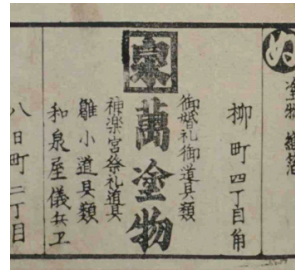 ぬ
塗物
柳町四丁目角
御婚礼御道具類
萬塗物
神楽宮祭礼道具
雛小道具類
和泉屋儀兵卫
八日町二丁目